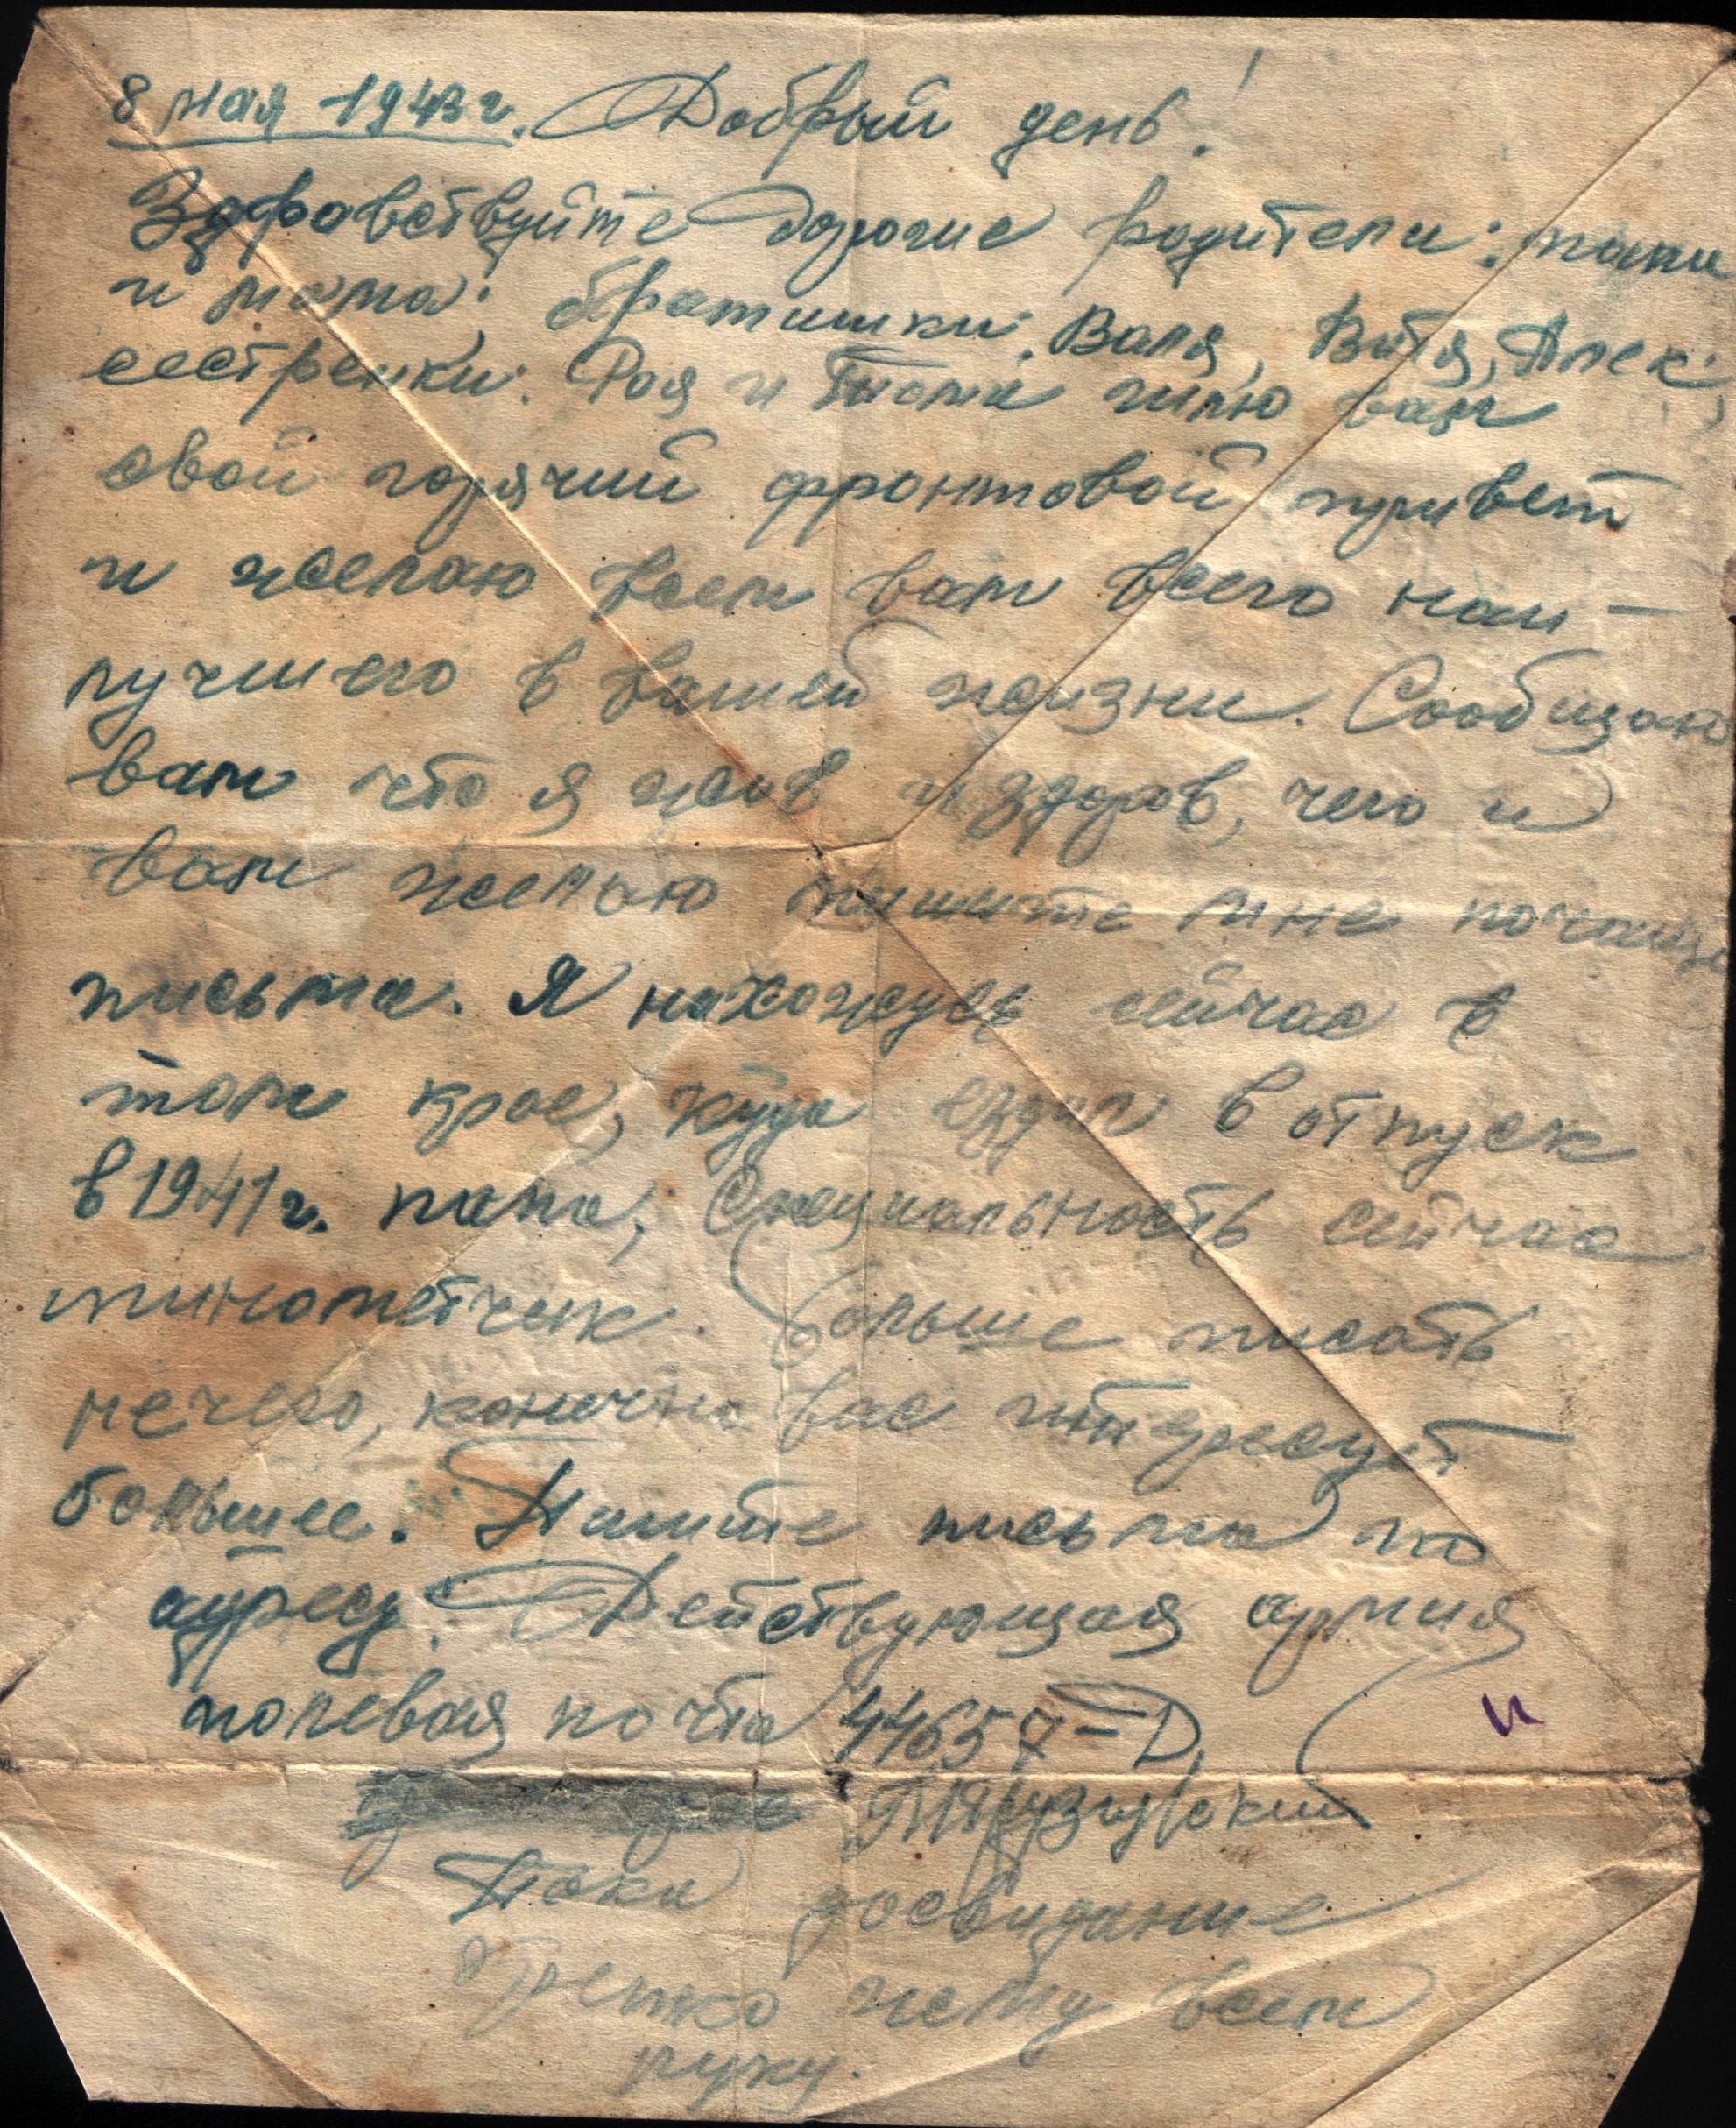 8 мая 1943 г. Добрый день!
Здравствуйте дорогие родители: папа
и мама; братишки: Валя, Витя, Алек;
сестренки: Рая и Тома шлю вам
свой горячий фронтовой привет
и желаю всем вам всего наи-
лучшего в вашей жизни. Сообщаю
вам что я жив и здоров, чего и
вам желаю пишите мне почаще
письма. Я нахожусь сейчас в
том крае, куда ездил в отпуск
в 1941 г. папа, Специальность сейчас
минометчик. Больше писать
нечего, конечно вас интересует
большее. Пишите письма по
адресу: Действующая армия
полевая почта 44657-D
Пока досвидание
Крепко жму всем
руку.
и